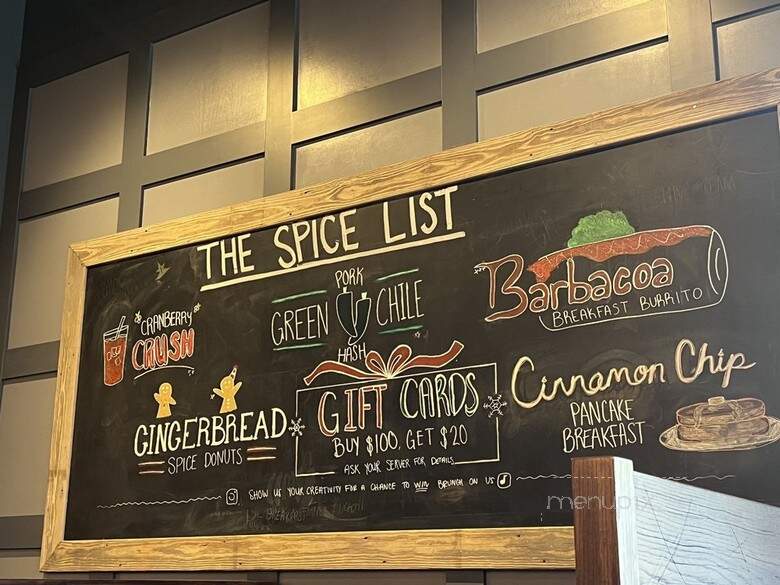 THE SPICE LIST
CRANBERRY
CRUSH
PORK
GREEN CHILE
HASH
Barbacoa
BREAKFAST BURRITO
GINGERBREAD
SPICE DONUTS
GIFT CARDS
BUY $100, GET $20
ASK YOUR SERVER FOR DETAILS
Cinnamon Chip
PANCAKE
BREAKFAST
SHOW US YOUR CREATIVITY FOR A CHANCE TO WIN BRUNCH ON US
menupix